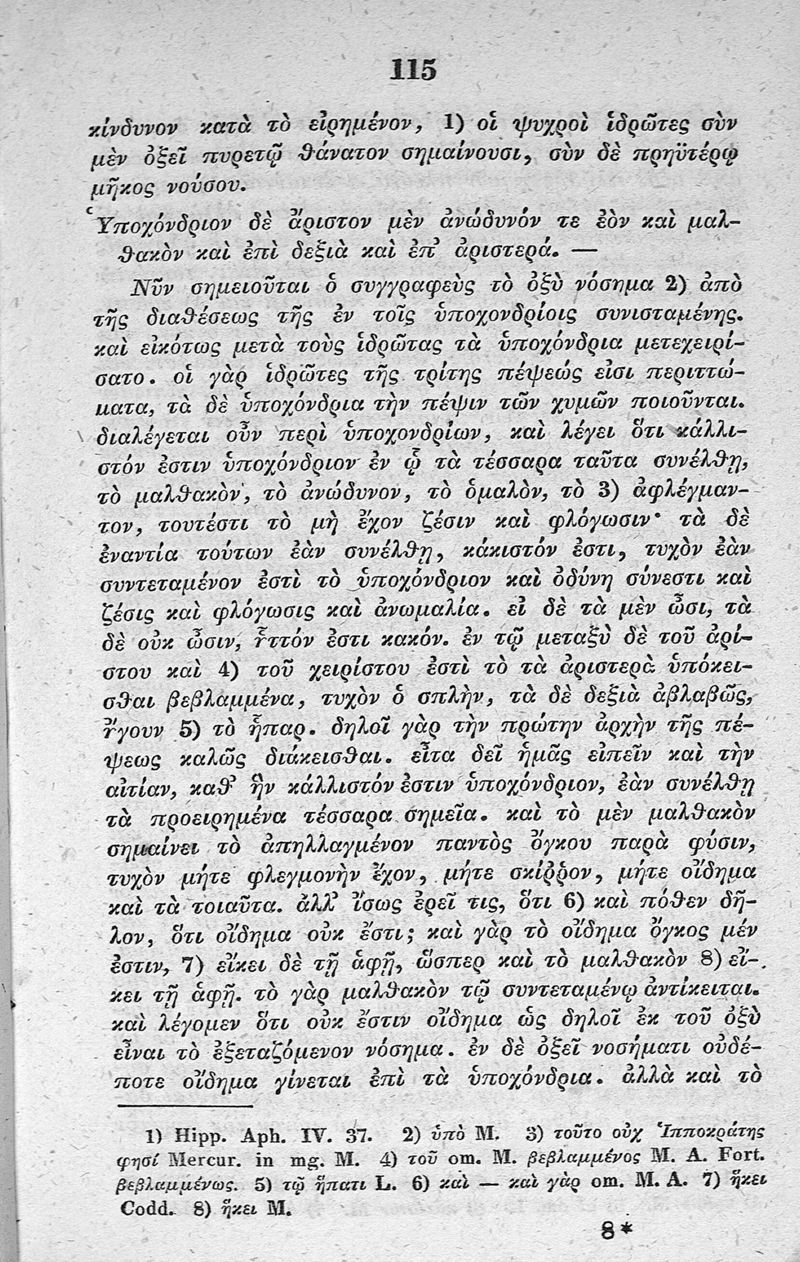 115
κίνδυνον κατὰ τὸ εἰρημένον, 1) οἱ ψυχροὶ ἱδρῶτες σὺν
μὲν ὀξεῖ πυρετῷ θάνατον σημαίνουσι, σὺν δὲ πρηϋτέρῳ
μῆκος νούσου.
Ὑποχόνδριον δὲ ἄριστον μὲν ἀνώδυνόν τε ἐὸν καὶ μαλ-
θακὸν καὶ ἐπὶ δεξιὰ καὶ ἐπ’ ἀριστερά. —
Νῦν σημειοῦται ὁ συγγραφεὺς τὸ ὀξὺ νόσημα 2) ἀπὸ
τῆς διαθέσεως τῆς ἐν τοῖς ὑποχονδρίοις συνισταμένης.
καὶ εἰκότως μετὰ τοὺς ἱδρῶτας τὰ ὑποχόνδρια μετεχειρί-
σατο. οἱ γὰρ ἱδρῶτες τῆς τρίτης πέψεώς εἰσι περιττώ-
ματα, τὰ δὲ ὑποχόνδρια τὴν πέψιν τῶν χυμῶν ποιοῦνται.
διαλέγεται οὖν περὶ ὑποχονδρίων, καὶ λέγει ὅτι κάλλι-
στόν ἐστιν ὑποχόνδριον ἐν ᾧ τὰ τέσσαρα ταῦτα συνέλθῃ,
τὸ μαλθακὸν, τὸ ἀνώδυνον, τὸ ὁμαλὸν, τὸ 3) ἀφλέγμαν-
τον, τουτέστι τὸ μὴ ἔχον ζέσιν καὶ φλόγωσιν· τὰ δὲ
ἐναντία τούτων ἐὰν συνέλθῃ, κάκιστόν ἐστι, τυχὸν ἐὰν
συντεταμένον ἐστὶ τὸ ὑποχόνδριον καὶ ὀδύνη σύνεστι καὶ
ζέσις καὶ φλόγωσις καὶ ἀνωμαλία. εἰ δὲ τὰ μὲν ὦσι, τὰ
δὲ οὐκ ὦσιν, ἧττόν ἐστι κακόν. ἐν τῷ μεταξὺ δὲ τοῦ ἀρί-
στου καὶ 4) τοῦ χειρίστου ἐστὶ τὸ τὰ ἀριστερὰ ὑπόκει-
σθαι βεβλαμμένα, τυχὸν ὁ σπλὴν, τὰ δὲ δεξιὰ ἀβλαβῶς,
ἤγουν 5) τὸ ἧπαρ. δηλοῖ γὰρ τὴν πρώτην ἀρχὴν τῆς πέ-
ψεως καλῶς διάκεισθαι. εἶτα δεῖ ἡμᾶς εἰπεῖν καὶ τὴν
αἰτίαν, καθ’ ἣν κάλλιστόν ἐστιν ὑποχόνδριον, ἐὰν συνέλθῃ
τὰ προειρημένα τέσσαρα σημεῖα. καὶ τὸ μὲν μαλθακὸν
σημαίνει τὸ ἀπηλλαγμένον παντὸς ὄγκου παρὰ φύσιν,
τυχὸν μήτε φλεγμονὴν ἔχον, μήτε σκίῤῥον, μήτε οἴδημα
καὶ τὰ τοιαῦτα. ἀλλ’ ἴσως ἐρεῖ τις, ὅτι 6) καὶ πόθεν δῆ-
λον, ὅτι οἴδημα οὐκ ἔστι; καὶ γὰρ τὸ οἴδημα ὄγκος μέν
ἐστιν, 7) εἴκει δὲ τῇ ἁφῇ, ὥσπερ καὶ τὸ μαλθακὸν 8) εἴ-
κει τῇ ἁφῇ. τὸ γὰρ μαλθακὸν τῷ συντεταμένῳ ἀντίκειται.
καὶ λέγομεν ὅτι οὐκ ἔστιν οἴδημα ὡς δηλοῖ ἐκ τοῦ ὀξὺ
εἶναι τὸ ἐξεταζόμενον νόσημα. ἐν δὲ ὀξεῖ νοσήματι οὐδέ-
ποτε οἴδημα γίνεται ἐπὶ τὰ ὑποχόνδρια. ἀλλὰ καὶ τὸ
1) Hipp. Aph. IV. 37. 2) ὑπὸ M. 3) τοῦτο οὐχ Ἱπποκράτης
φησί Mercur. in mg. M. 4) τοῦ om. M. βεβλαμμένος M. A. Fort.
βεβλαμμένως. 5) τῷ ἥπατι L. 6) καὶ — καὶ γὰρ om. M. A. 7) ἥκει
Codd. 8) ἥκει M.
8*